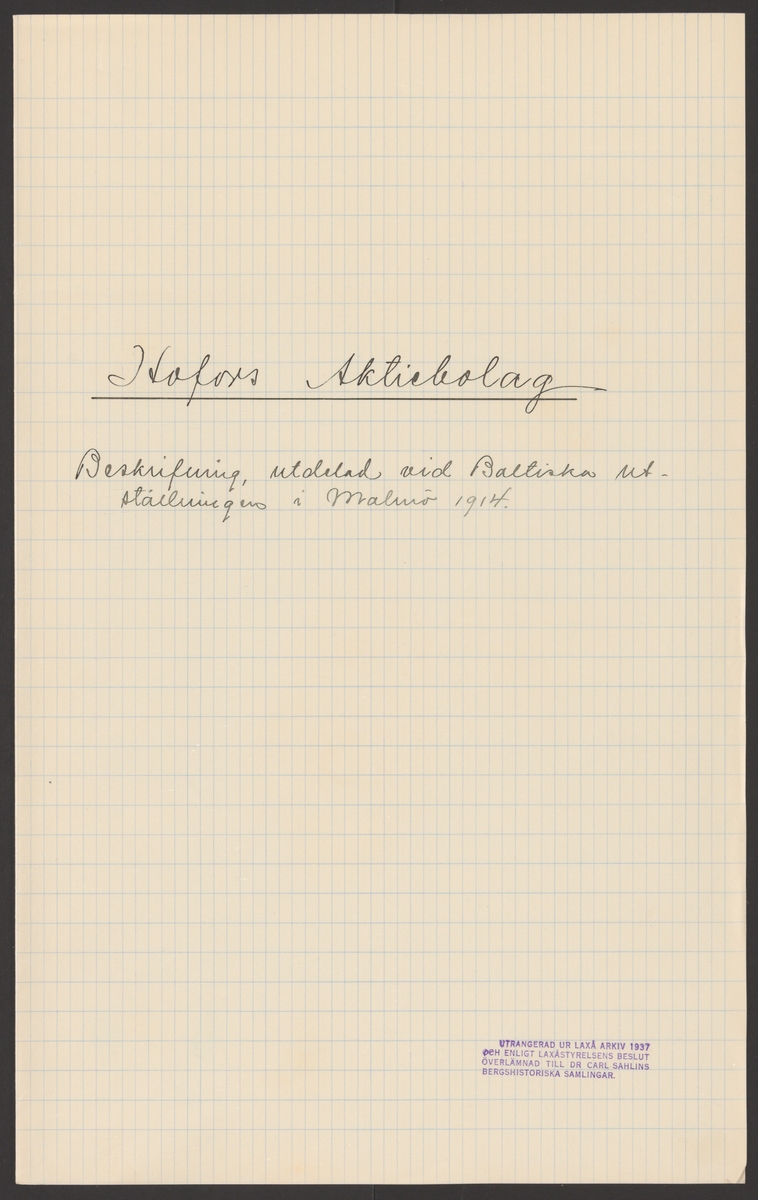 Hofors Aktiebolag
Beskrifning, utdelad vid Baltiska ut-
ställningen i Malmö 1914.
UTRANGERAD UR LAXÅ ARKIV 1937
OCH ENLIGT LAXÅSTYRELSENS BESLUT
ÖVERLÄMNAD TILL DR CARL SAHLINS
BERGSHISTORISKA SAMLINGAR.